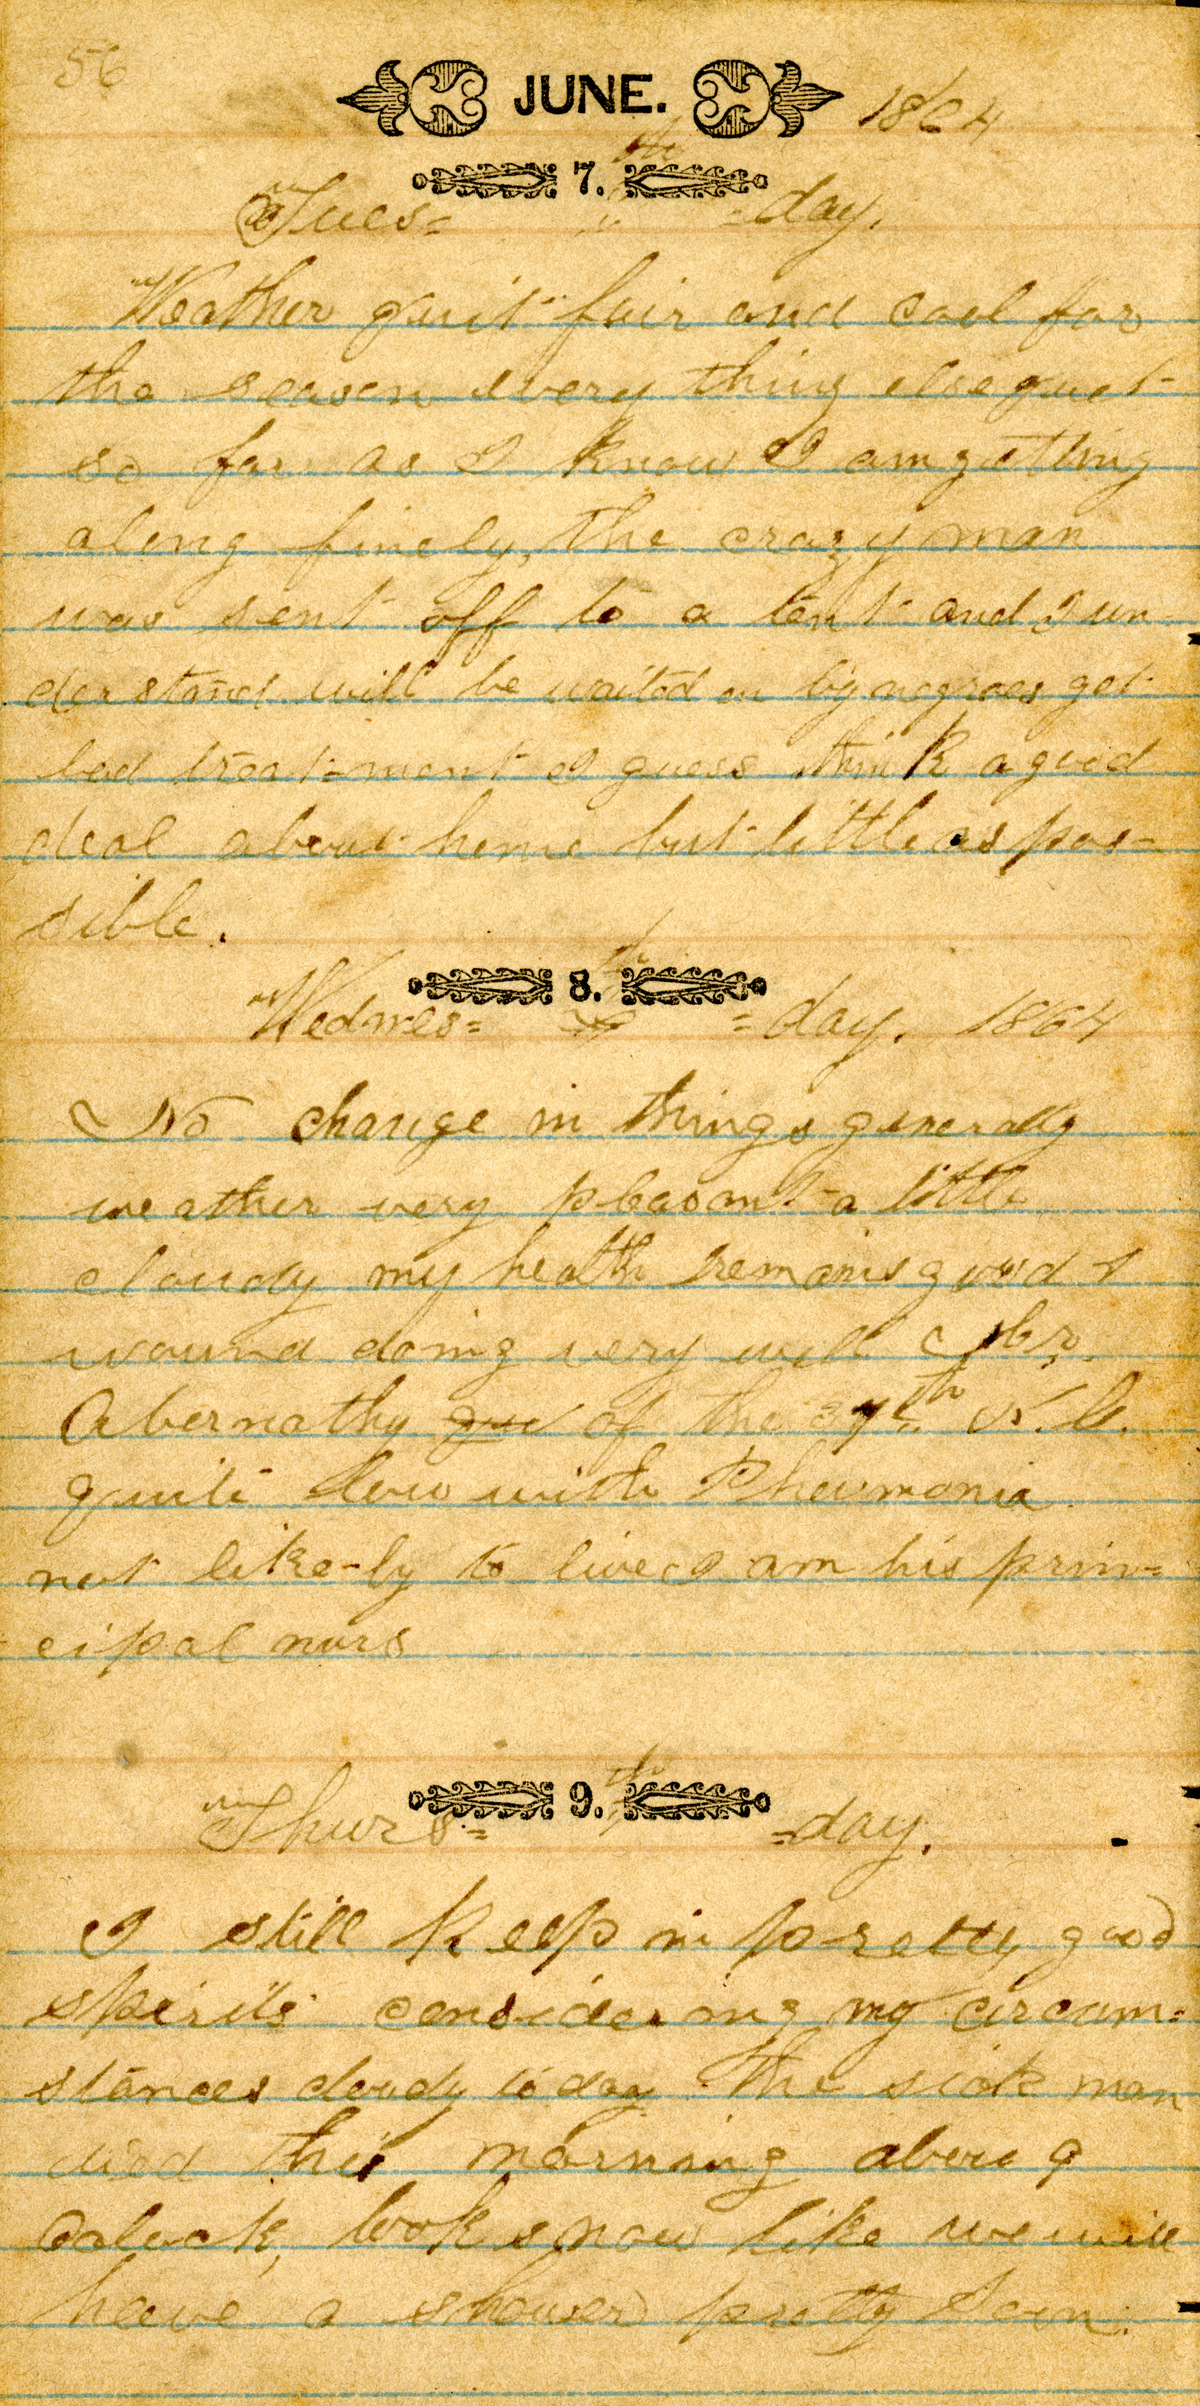 56
JUNE. 1864
7. th
Tues= =day.
Weather quit fair and cool for
the season every thing else quiet
so far as I know I am getting
along finely, the crazy man
was sent off to a tent and I un
derstand will be waited on by negroes get
bad treat-ment I guess think a good
deal about home but little as pos-
sible.
8. th
Wednes= =day. 1864
No change in things generally
weather very pleasant a little
cloudy my health remains good &
wound doing very well
Abernathy of the 37th N.C.
quite low with Pheumonia
not like-ly to live I am his prin=
cipal nurs
9. th
Thurs= =day.
I still keep in pretty good
spirits considering my circum=
stances cloudy today the sick man
died this morning about 9
Oclock, looks now like we will
heave a shower pretty soon.